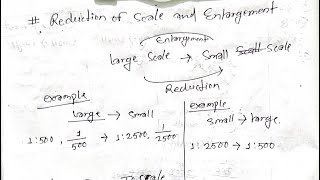 # Reduction of Scale and Enlargement
Enlargement
large Scale → Small Scale
Reduction
example
Large → Small
1:500, 1/500 → 1:2500, 1/2500
example
Small → large.
1:2500 → 1:500
To scale